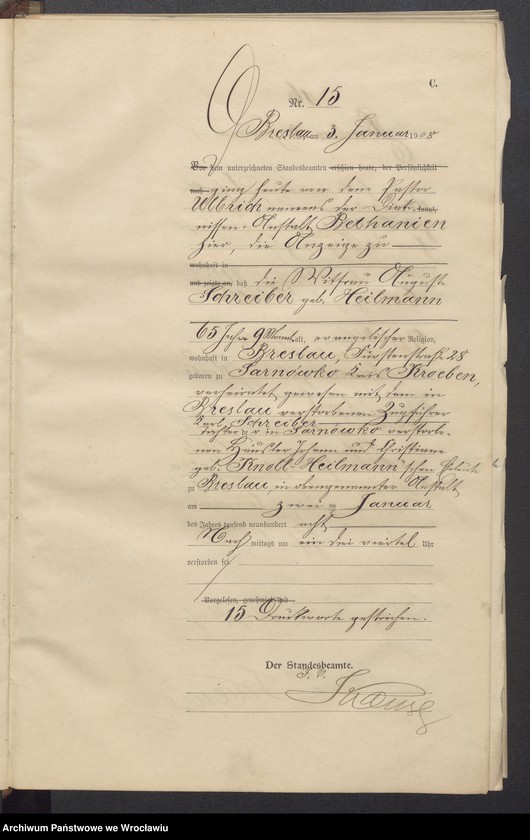 C.
Nr. 15
Breslau am 3. Januar 1908
Vor dem unterzeichneten Standesbeamten erschien heute, der Persönlichkeit
nach ging heute von dem Pastor
Ulbrich namens der Diako- kannt,
nissen-Anstalt Bethanien
hier, die Anzeige zu
wohnhaft in
und zeigte an, daß die Wittfrau Auguste
Schreiber geb. Heilmann
65 Jahre 9 Monate alt, evangelischer Religion,
wohnhaft in Breslau, Fürstenstraße 28
geboren zu Sarnowko Kreis Kroeben,
verheirathet gewesen mit dem in
Breslau verstorbenen Zugführer
Karl Schreiber
Tochter der in Sarnowko verstorbe-
nen Häusler Johann und Christiane
geb. Knoll Heilmann'schen Eheleute
zu Breslau, in obengenannter Anstalt
am zwei ten Januar
des Jahres tausend neunhundert acht
Nach mittags um ein drei viertel Uhr
verstorben sei.
Vorgelesen, genehmigt und
15 Druckworte gestrichen.
Der Standesbeamte.
J. V.
Archiwum Państwowe we Wrocławiu